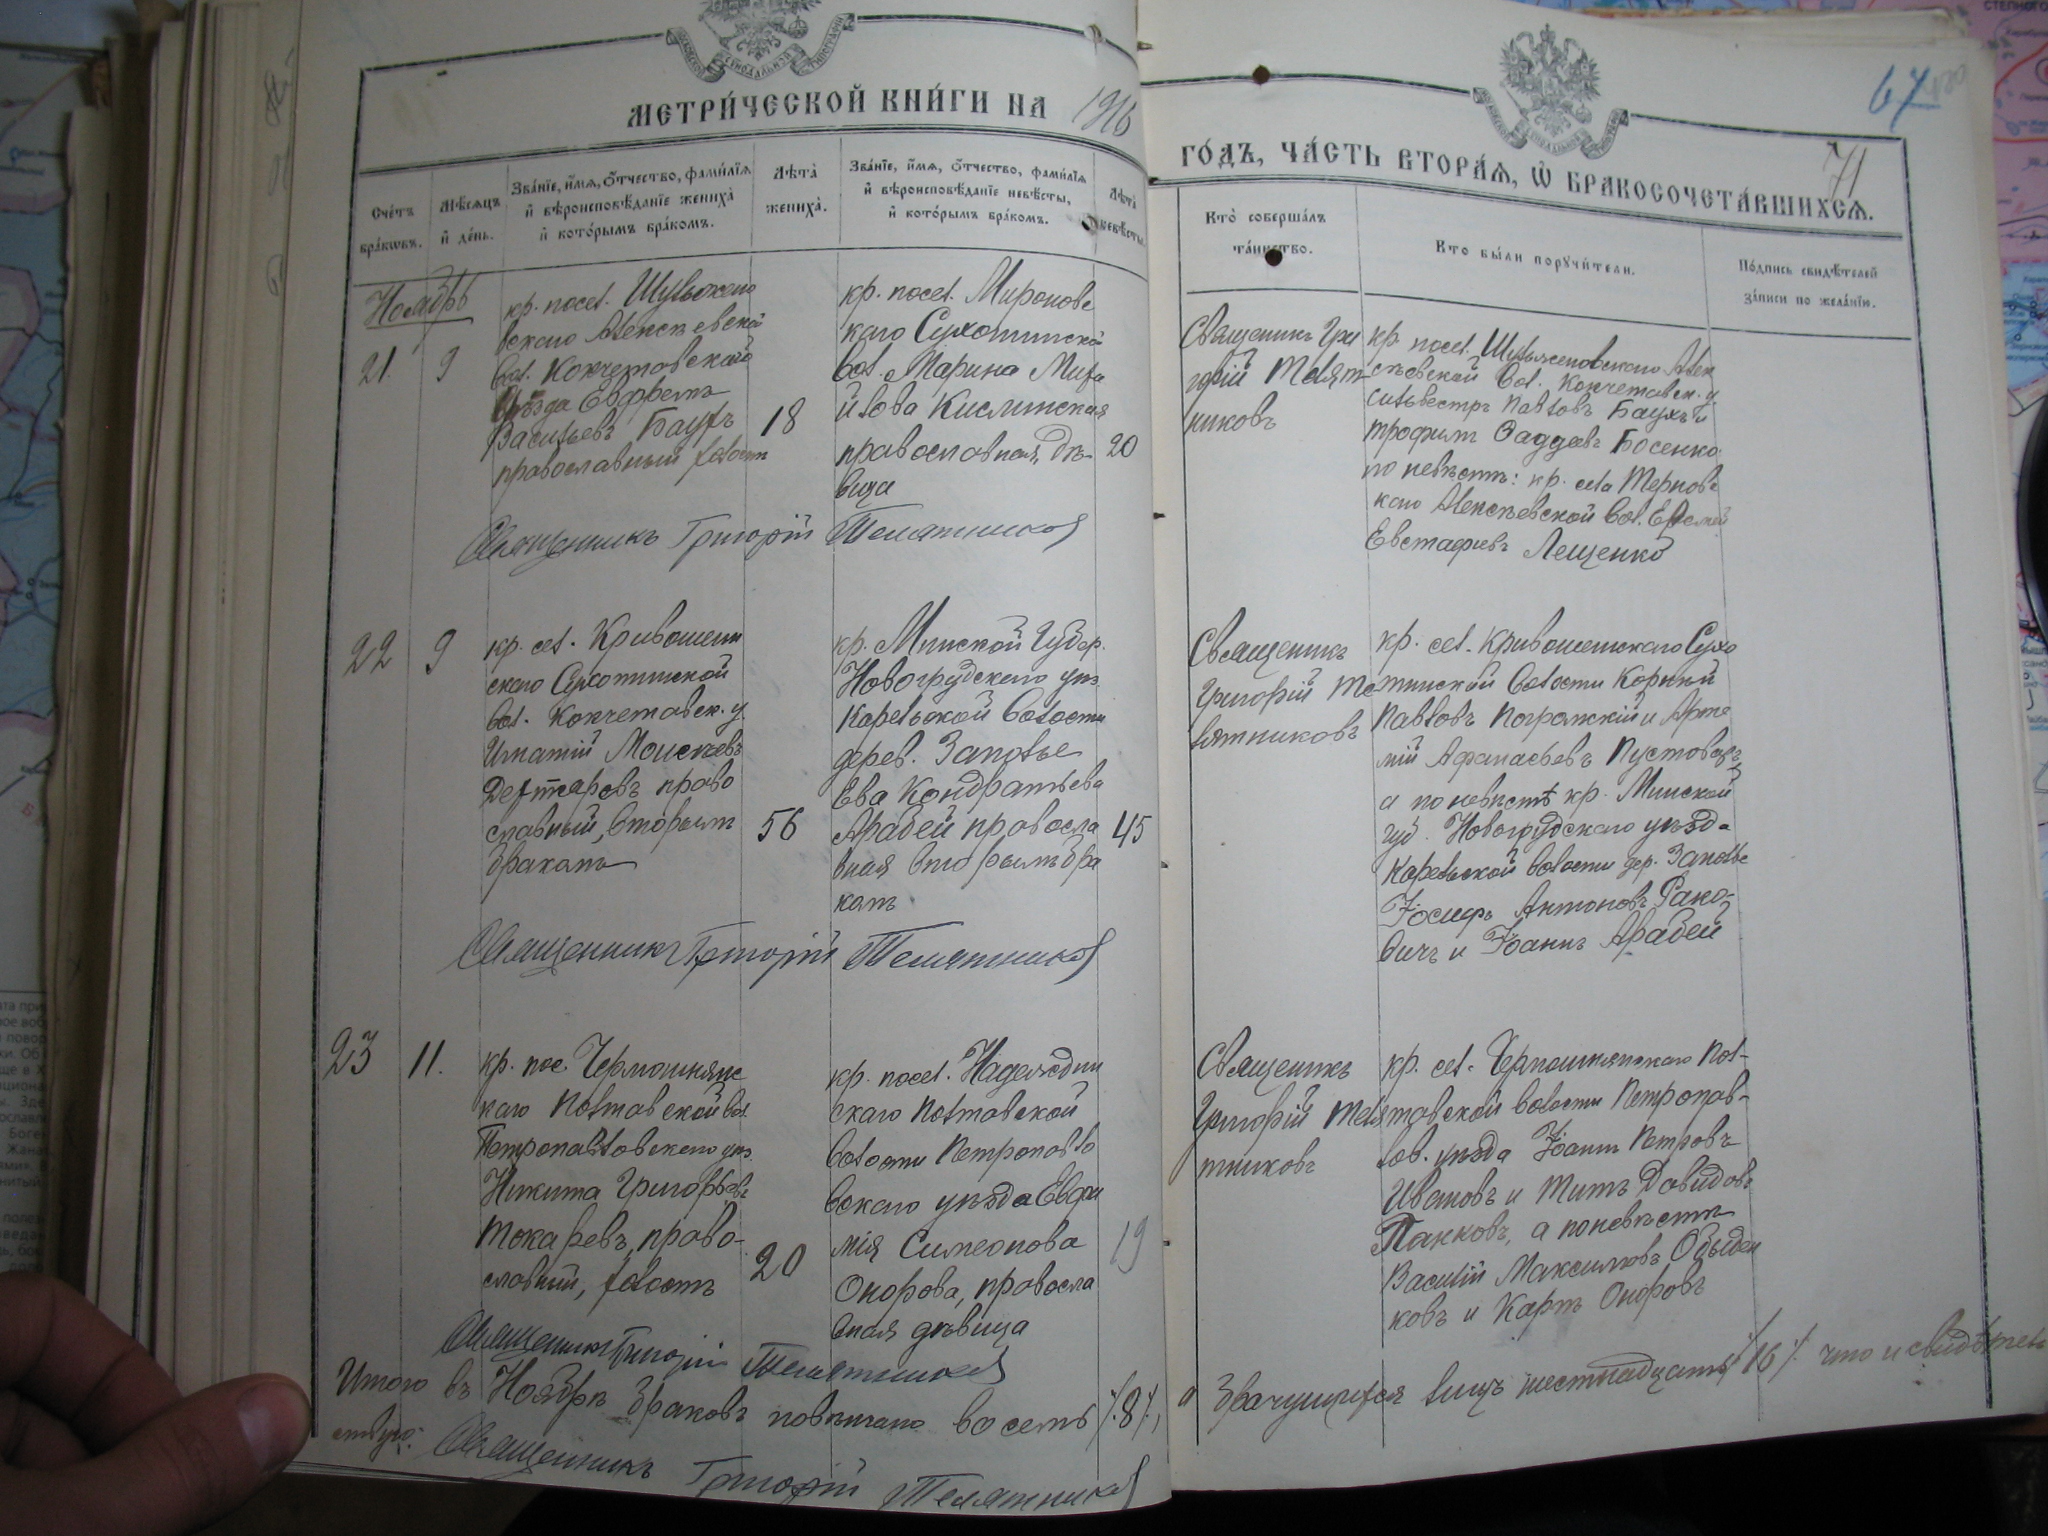 МЕТРИ́ЧЕСКОЙ КНИ́ГИ НА 1916
ГО́ДЪ, ЧА́СТЬ ВТОРА́Я, Ѿ БРАКОСОЧЕТА́ВШИХСЯ.
67
71
Сче́тъ бра́кѡвъ.
Мѣ́сяцъ и҆ де́нь.
Зва́нїе, и҆́мя, ѻ҆́тчество, фами́лїя
и҆ вѣроисповѣ́данїе жениха̀
и҆ кото́рымъ бра́комъ.
Лѣта̀
жениха̀.
Зва́нїе, и҆́мя, ѻ҆́тчество, фами́лїя
и҆ вѣроисповѣ́данїе невѣ́сты,
и҆ кото́рымъ бра́комъ.
Лѣта̀
невѣ́сты.
Кто̀ соверша́лъ
та́инство.
Кто бы́ли порꙋчи́тели.
По́дпись свидѣ́телей
за́писи по жела́нїю.
Ноябрь
21. 9
кр. посел.
вскаго Алексѣевской
вол. Кокчетовскаго
уѣзда Ефремъ
Васильевъ Баухъ
православный холостъ
18
кр. посел. Миронове
каго Сухотинской
вол. Марина Миха
йлова Кислинская
православная, дѣ-
вица
20
Священникъ Гри
горій Телят
никовъ
кр. посел. Алек
сѣевской вол. Кокчетавск. у.
Сильвестръ Павловъ Баухъ и
Трофимъ Фаддеевъ Босенко
по невѣстѣ: кр. села Терновс
каго Алексѣевской вол. Еремей
Евстафіевъ Лещенко
Священникъ Григорій Телятниковъ
22 9
кр. сел. Кривошеин
скаго Сухотинской
вол. Кокчетавск. у.
Игнатій Моисеевъ
Дехтяревъ право
славный, вторымъ
бракомъ
56
кр. Минской Губер.
Новогрудскаго уѣз.
Карельской волости
дерев. Заполье
Ева Кондратьева
Арабей правосла
вная вторымъ бра
комъ
45
Священникъ
Григорій Те
лятниковъ
кр. сел. Кривошеинскаго Сухо
тинской волости Корнилій
Павловъ и Арте
мій Афанасьевъ Пустоваръ
а по невѣстѣ кр. Минской
губ. Новогрудскаго уѣзда
Карельской волости дер. Заполье
Іосифъ Антоновъ Рако-
вичъ и Іоаннъ Арабей
Священникъ Григорій Телятниковъ
23 11.
кр. пос. Чермошнянс
каго Полтавской вол.
Петропавловскаго уѣз.
Никита Григорьевъ
Токаревъ, право-
славный, холостъ
20
кр. посел. Надеждин
скаго Полтавской
волости Петропавло
вскаго уѣзда Евфи
мія Симеонова
Онорова, правосла
вная дѣвица
19
Священникъ
Григорій Теля
тниковъ
кр. сел. Чермошнянскаго Пол-
тавской волости Петропав-
лов. уѣзда Іоаннъ Петровъ
Ивановъ и Титъ Давидовъ
Панковъ, а по невѣстѣ
Василій Максимовъ Обыден
ковъ и Карпъ Оноровъ
Священникъ Григорій Телятниковъ
Итого въ Ноябрѣ браковъ повѣнчано восемь /.8./, а брачущихся лицъ шестнадцать /.16./. что и свидѣтель
ствую:
Священникъ Григорій Телятниковъ